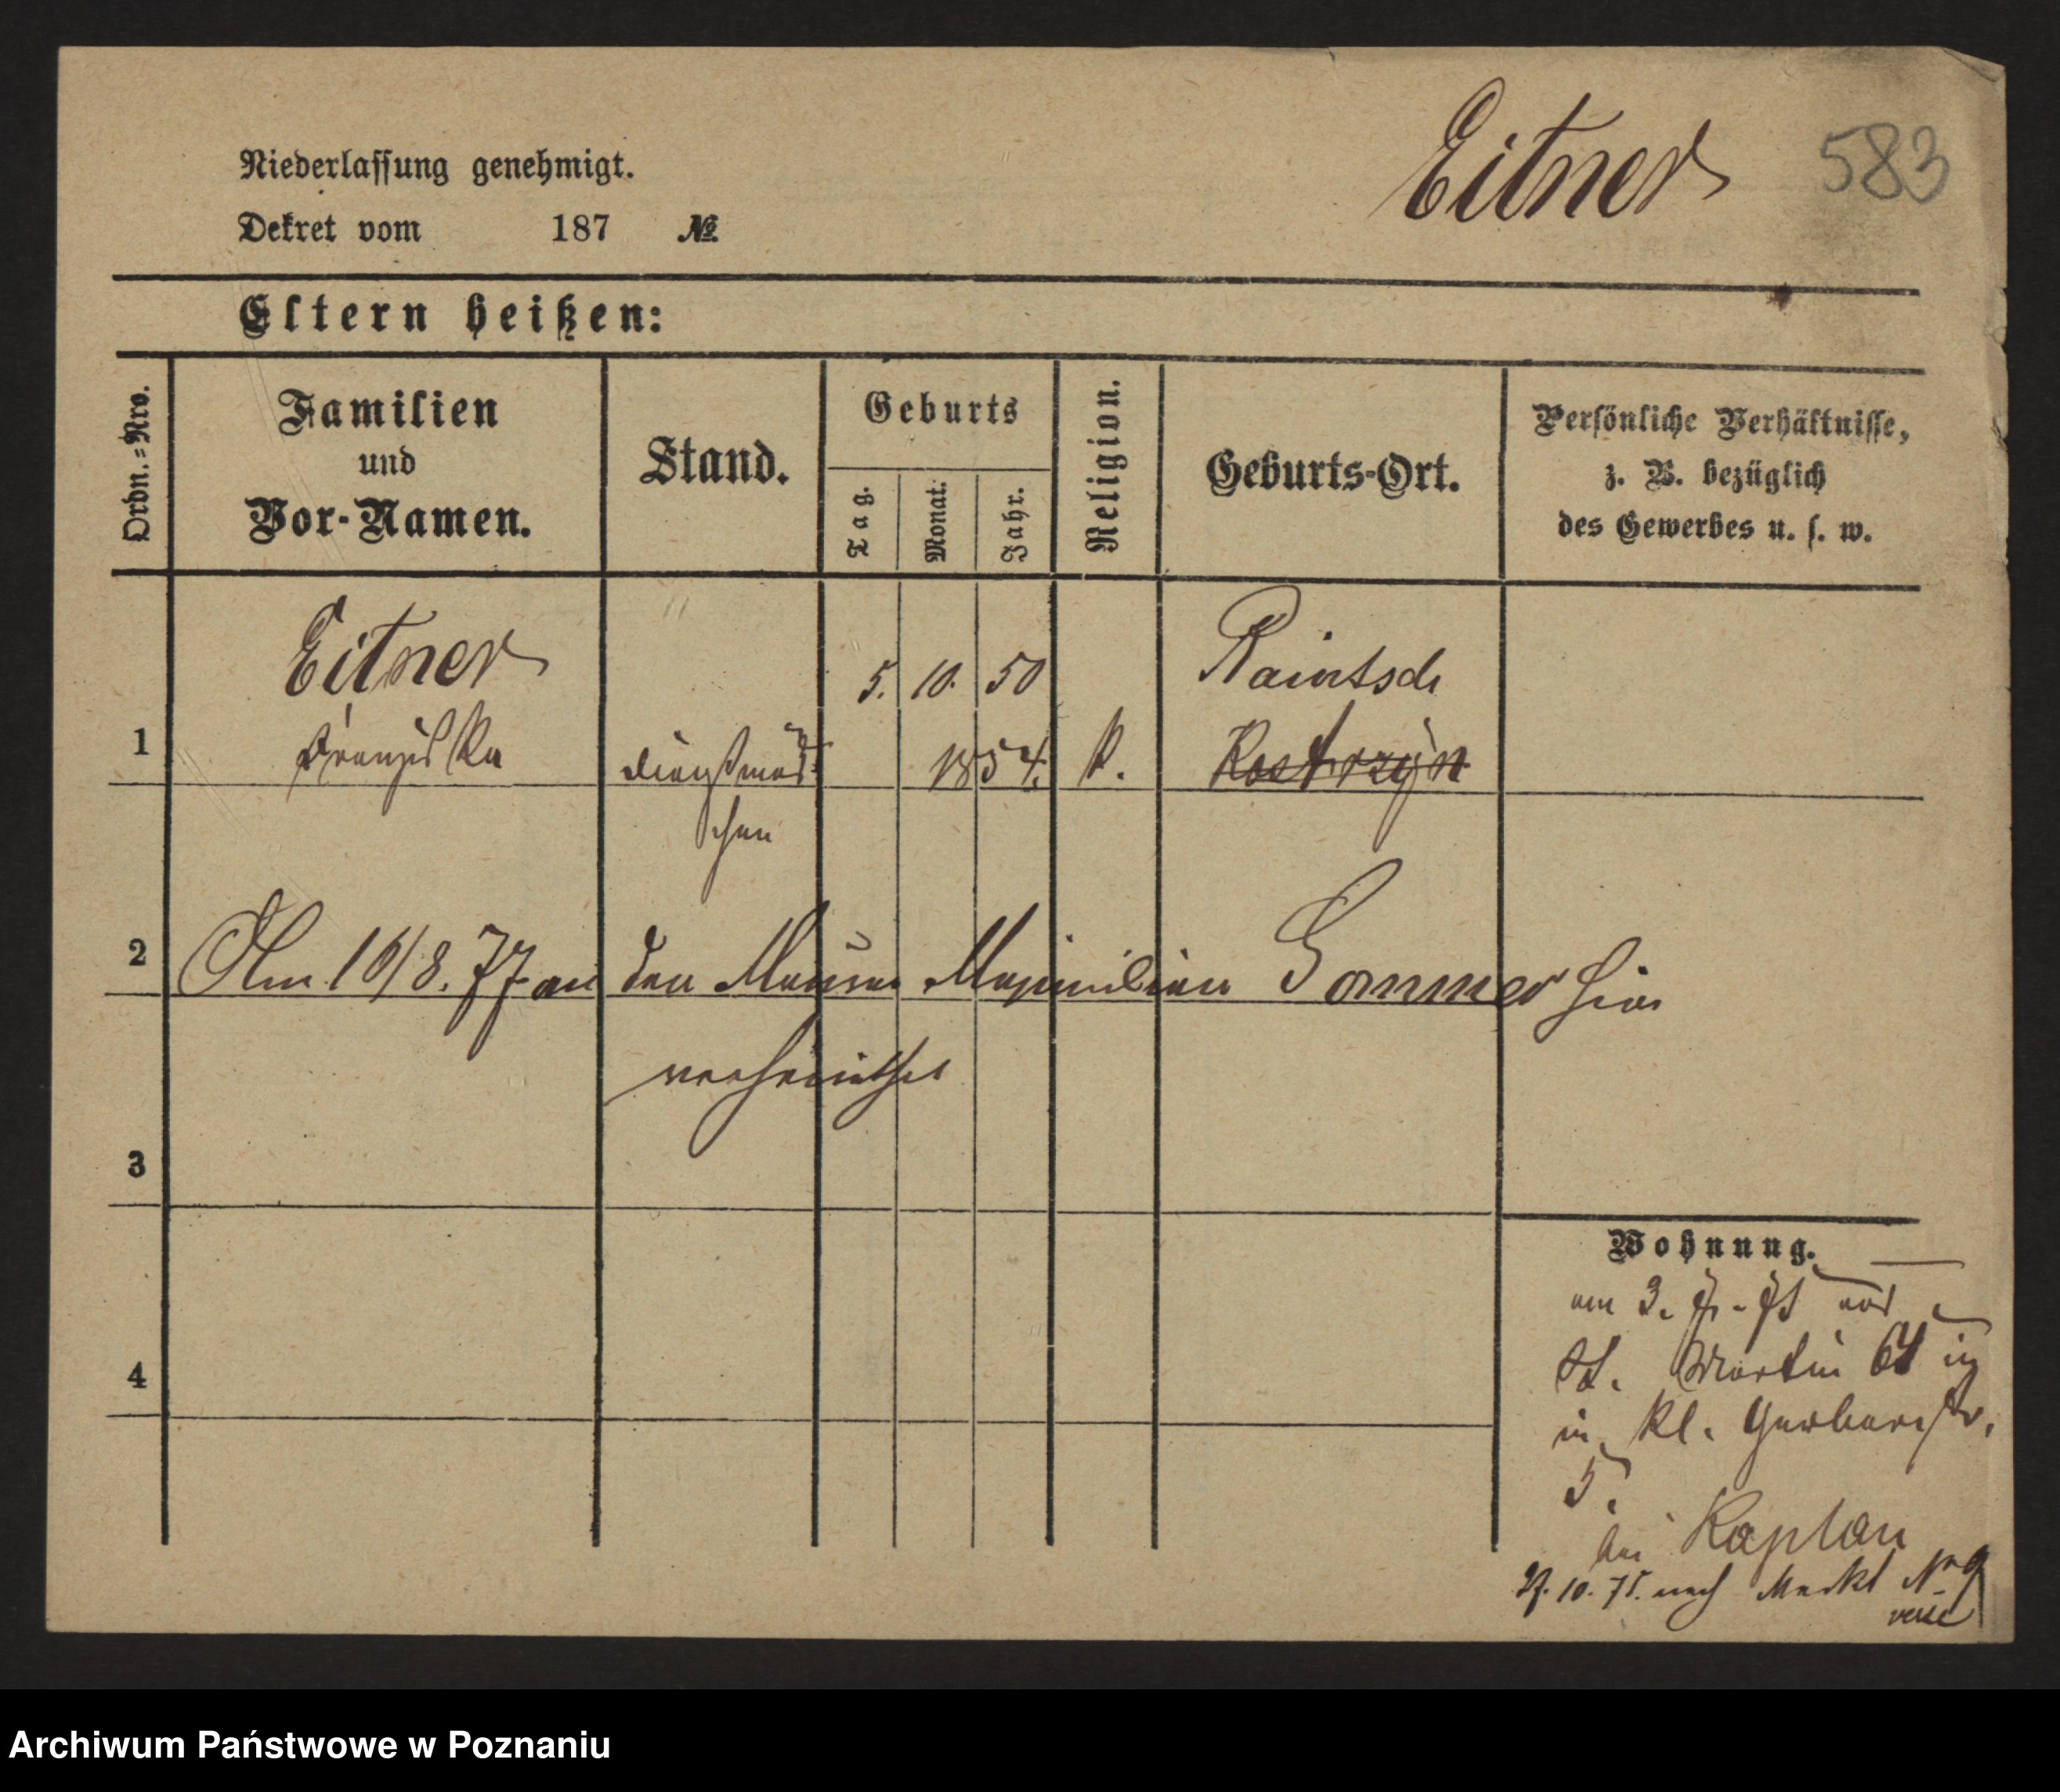 Eitner 583
Niederlassung genehmigt.
Dekret vom 187 №
Eltern heißen:
Ordn.=Nro.
Familien
und
Vor-Namen.
Stand.
Geburts
Tag.
Monat.
Jahr.
Religion.
Geburts-Ort.
Persönliche Verhältnisse,
z. B. bezüglich
des Gewerbes u. s. w.
Eitner 5. 10. 50
1 Franziska Dienstmäd= 1854. k. Kostrzyn
chen
2 Am 16/8. 77 an den Maurer Maximilian Sommer hier
verheirathet
3
Wohnung.
am 3. 7. 75 von
St. Martin 64
in Kl. Gerberstr.
5.
bei Kaplan
27. 10. 75. nach Markt No 9
4
Archiwum Państwowe w Poznaniu